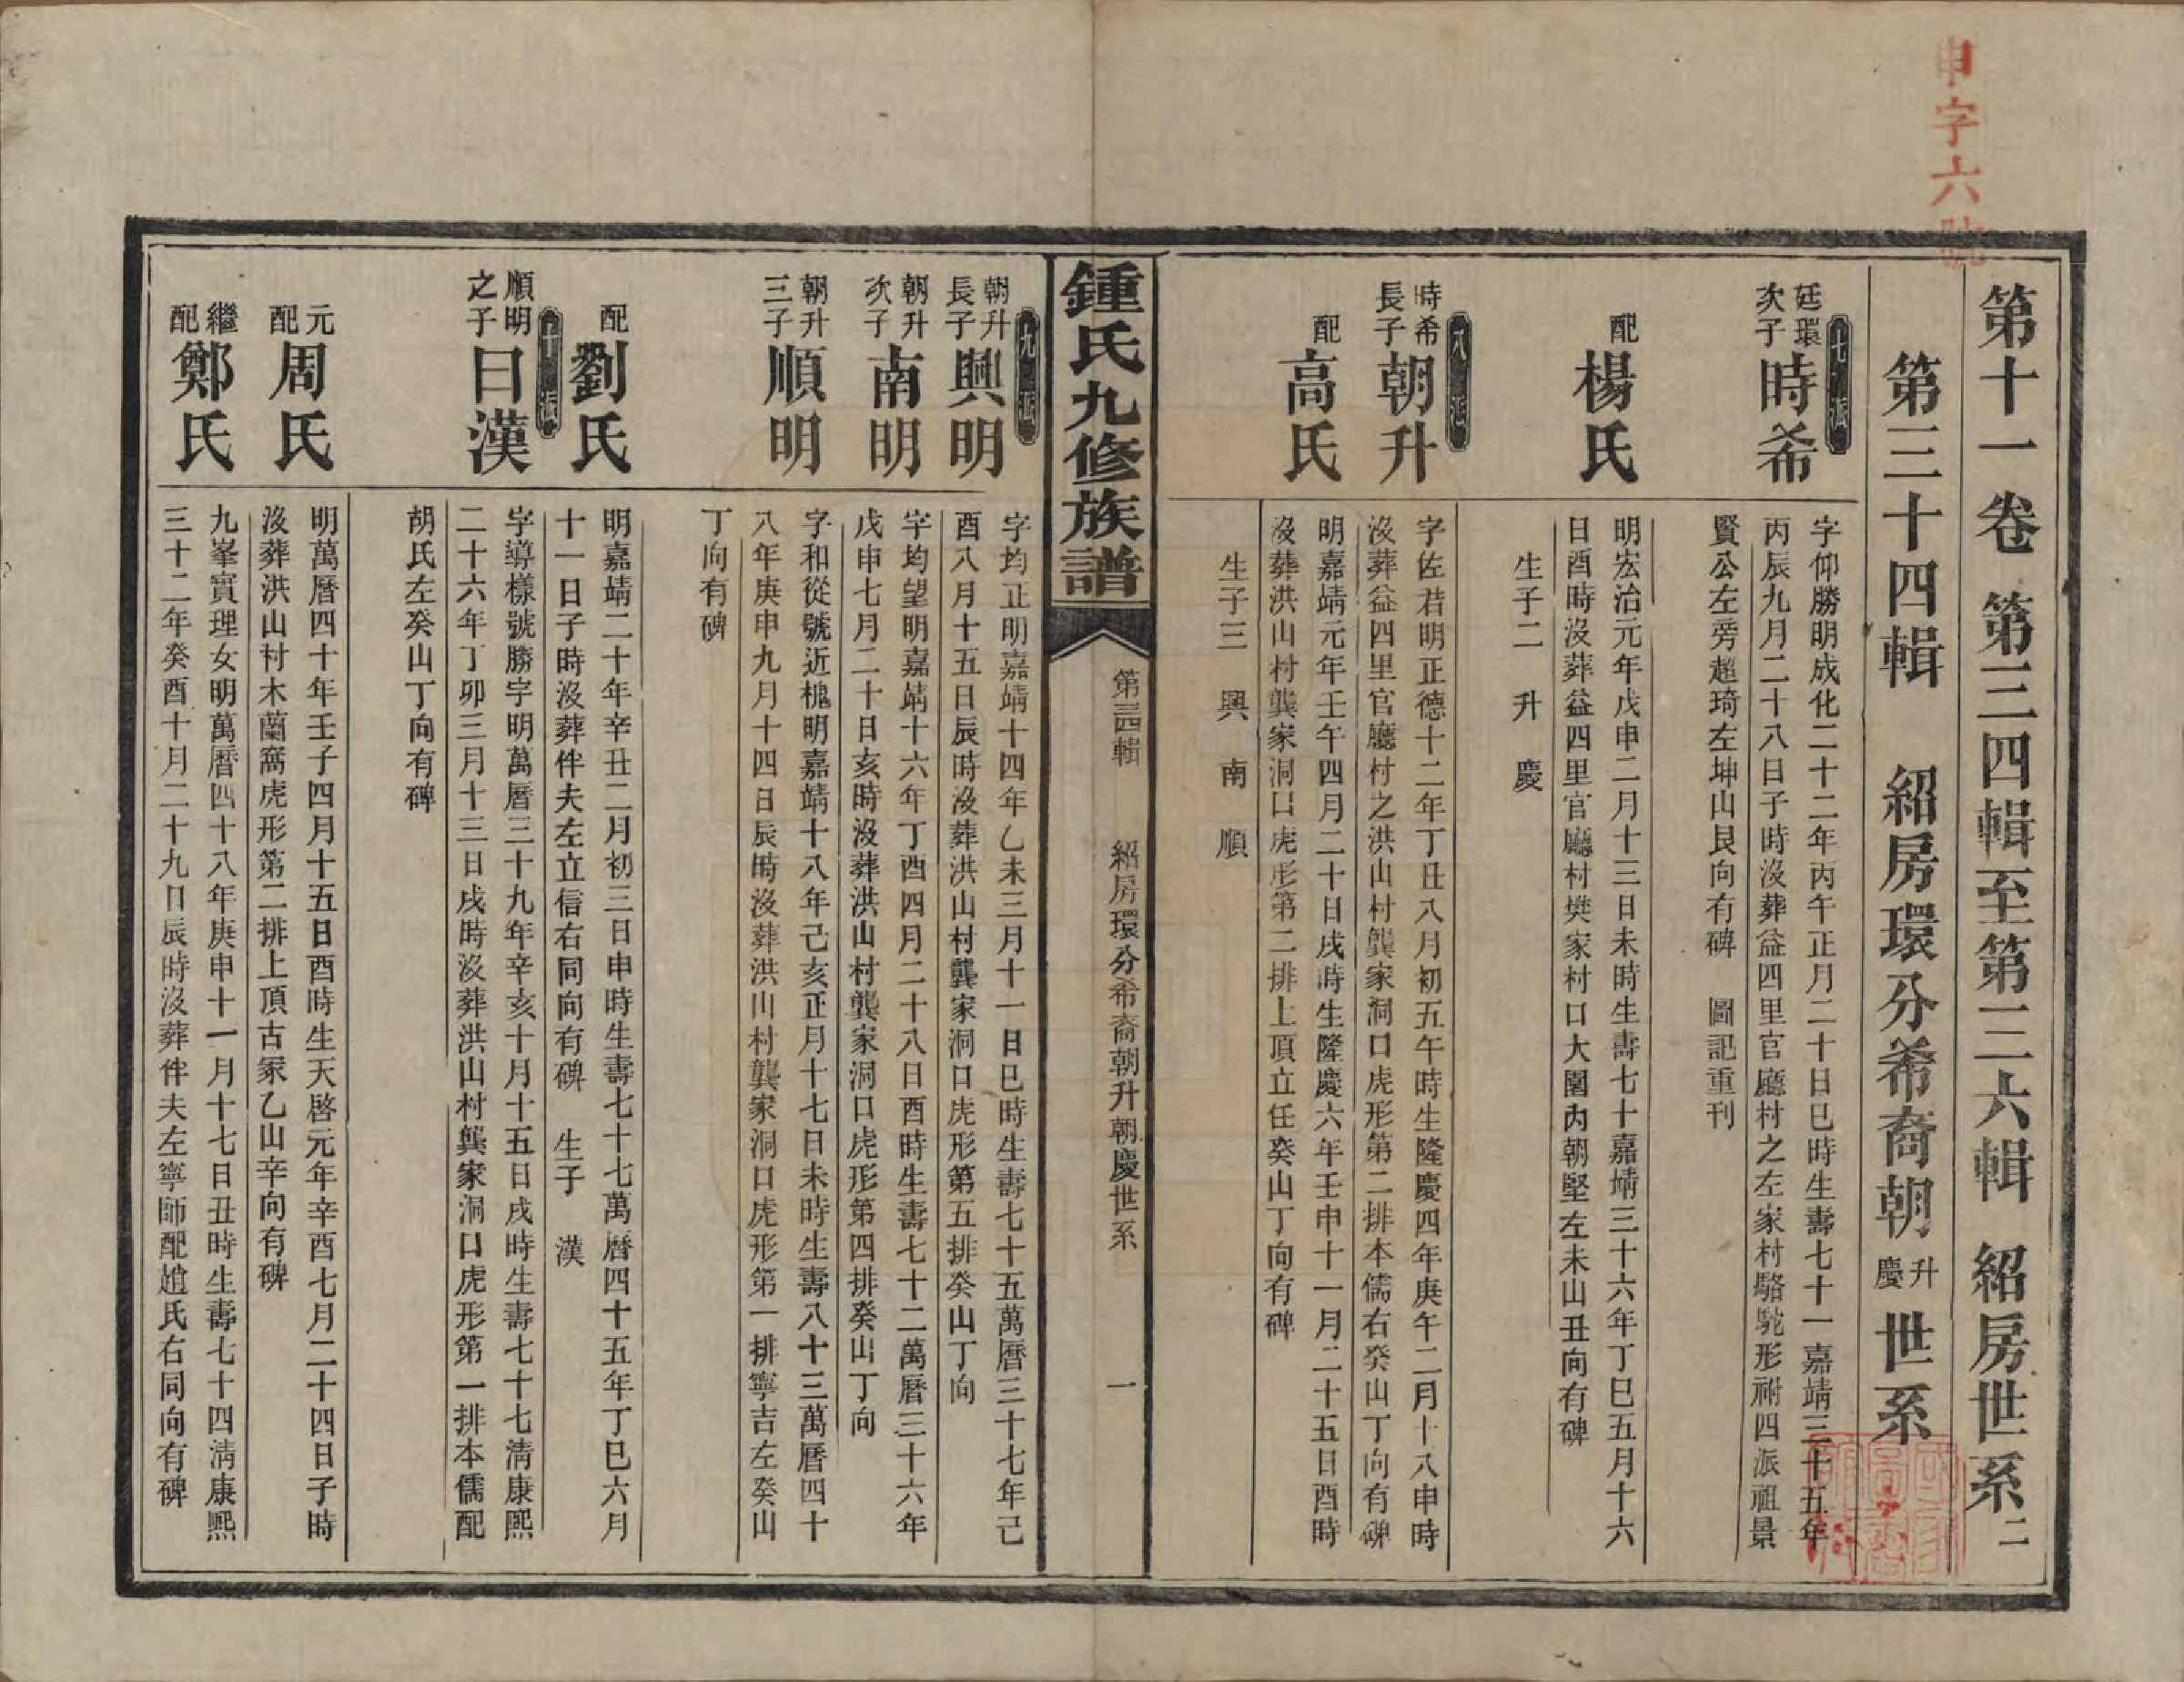 申字六號
第十一卷 第三四輯至第三六輯 紹房世系二
第三十四輯 紹房環分希裔朝升慶世系
七派
廷環次子 時希
字仰勝明成化二十二年丙午正月二十日巳時生壽七十一嘉靖三十五年
丙辰九月二十八日子時沒葬益四里官廳村之左家村駱駝形祔四派祖景
賢公左旁超琦左坤山艮向有碑 圖記重刊
配 楊氏
明宏治元年戊申二月十三日未時生壽七十嘉靖三十六年丁巳五月十六
日酉時沒葬益四里官廳村樊家村口大園內朝堅左未山丑向有碑
生子二 升 慶
八派
時希長子 朝升
字佐君明正德十二年丁丑八月初五午時生隆慶四年庚午二月十八申時
沒葬益四里官廳村之洪山村龔家洞口虎形第二排本儒右癸山丁向有碑
配 高氏
明嘉靖元年壬午四月二十日戌時生隆慶六年壬申十一月二十五日酉時
沒葬洪山村龔家洞口虎形第二排上頂立任癸山丁向有碑
生子三 興 南 順
鍾氏九修族譜
第三四輯 紹房環分希裔朝升朝慶世系 一
九派
朝升長子 興明
字均正明嘉靖十四年乙未三月十一日巳時生壽七十五萬曆三十七年己
酉八月十五日辰時沒葬洪山村龔家洞口虎形第五排癸山丁向
朝升次子 南明
字均望明嘉靖十六年丁酉四月二十八日酉時生壽七十二萬曆三十六年
戊申七月二十日亥時沒葬洪山村龔家洞口虎形第四排癸山丁向
朝升三子 順明
字和從號近槐明嘉靖十八年己亥正月十七日未時生壽八十三萬曆四十
八年庚申九月十四日辰時沒葬洪山村龔家洞口虎形第一排寧吉左癸山
丁向有碑
配 劉氏
明嘉靖二十年辛丑二月初三日申時生壽七十七萬曆四十五年丁巳六月
十一日子時沒葬伴夫左立信右同向有碑 生子 漢
十派
順明之子 曰漢
字導樣號勝宇明萬曆三十九年辛亥十月十五日戌時生壽七十七清康熙
二十六年丁卯三月十三日戌時沒葬洪山村龔家洞口虎形第一排本儒配
胡氏左癸山丁向有碑
元配 周氏
明萬曆四十年壬子四月十五日酉時生天啓元年辛酉七月二十四日子時
沒葬洪山村木蘭窩虎形第二排上頂古冢乙山辛向有碑
繼配 鄭氏
九峯實理女明萬曆四十八年庚申十一月十七日丑時生壽七十四清康熙
三十二年癸酉十月二十九日辰時沒葬伴夫左寧師配趙氏右同向有碑